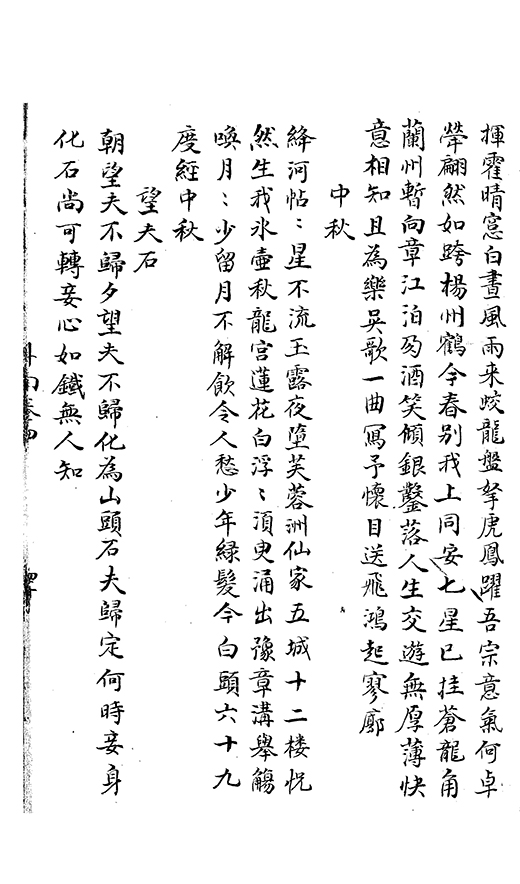 揮霍晴窓白晝風雨来蛟龍盤拏虎鳳躍吾宗意氣何卓
犖翩然如跨楊州鶴今春別我上同安七星已挂蒼龍角
蘭州暫向章江泊匃酒笑傾銀鑿落人生交遊無厚薄快
意相知且為樂吳歌一曲冩予懷目送飛鴻起寥廓
中秋
絳河帖〻星不流玉露夜墮芙蓉洲仙家五城十二楼恍
然生我氷壺秋龍宮蓮花白浮〻湏臾涌出豫章溝舉觴
喚月〻少留月不解飲令人愁少年緑髮今白頭六十九
度經中秋
望夫石
朝望夫不歸夕望夫不歸化為山頭石夫歸定何時妾身
化石尚可轉妾心如鐵無人知